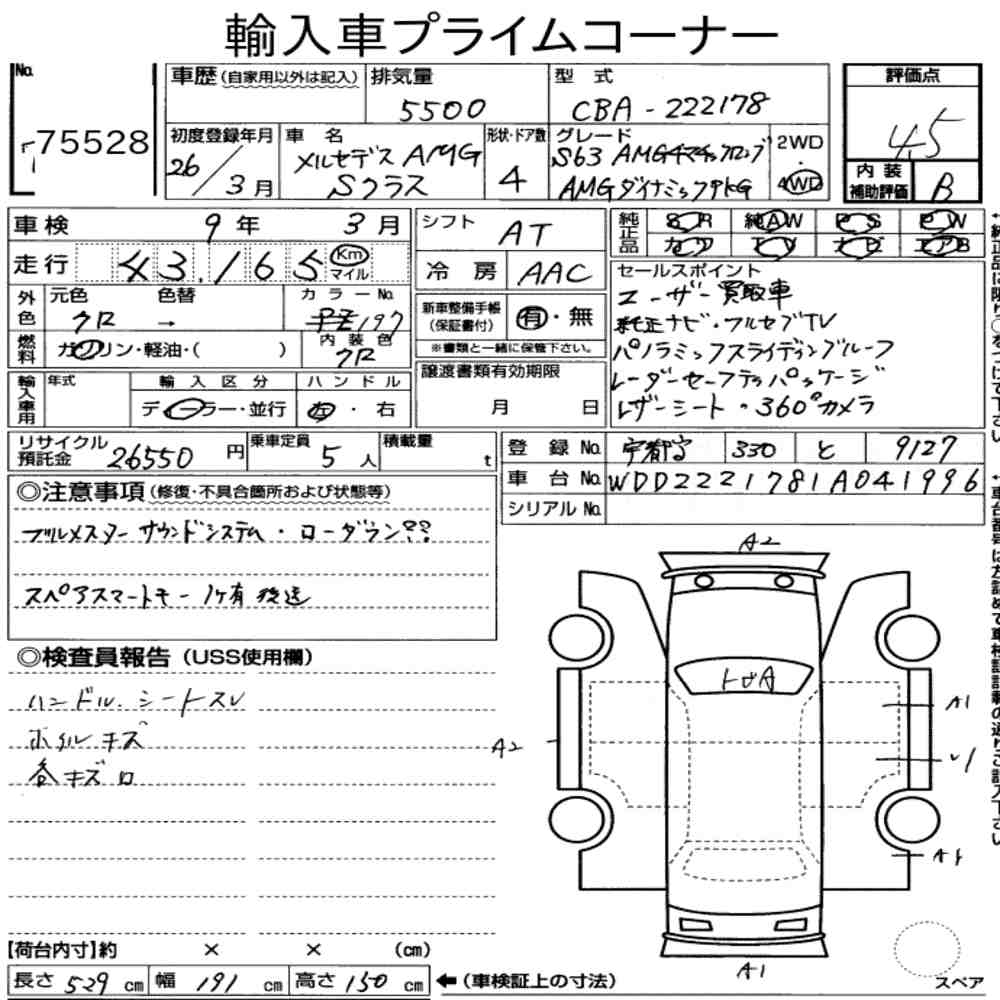 輸入車プライムコーナー
No. 75528
車歴 (自家用以外は記入)
排気量 5500
型式 CBA-222178
評価点 4.5
初度登録年月 26/3月
車名 メルセデス AMG Sクラス
形状・ドア数 4
グレード S63 AMG4マチックロング
AMGダイナミックPKG
2WD・4WD
内装補助評価 B
車検 9年 3月
シフト AT
純正品 SR 純AW PS PW
カワ TV ナビ エアB
走行 43,165 Km マイル
冷房 AAC
セールスポイント
ユーザー買取車
純正ナビ・フルセグTV
パノラミックスライディングルーフ
レーダーセーフティパッケージ
レザーシート・360°カメラ
外色 元色 クロ 色替 →
カラーNo. 197
内装色 クロ
燃料 ガソリン・軽油・( )
新車整備手帳(保証書付) 有・無
※書類と一緒に保管下さい。
輸入車用 年式
輸入区分 ディーラー・並行
ハンドル 左・右
譲渡書類有効期限
月 日
リサイクル預託金 26550円
乗車定員 5人
積載量 t
登録No. 宇都宮 330 と 9127
車台No. WDD2221781A041996
シリアルNo.
◎注意事項(修復・不具合箇所および状態等)
ブルメスター サウンドシステム・ローダウン??
スペアスマートキー1ケ有 後送
◎検査員報告(USS使用欄)
ハンドル.シートスレ
ホイルキズ
各キズ
A2
トビA
A1
A2
A1
A1
スペア
【荷台内寸】約 × × (cm)
長さ 529 cm 幅 191 cm 高さ 150 cm ←(車検証上の寸法)